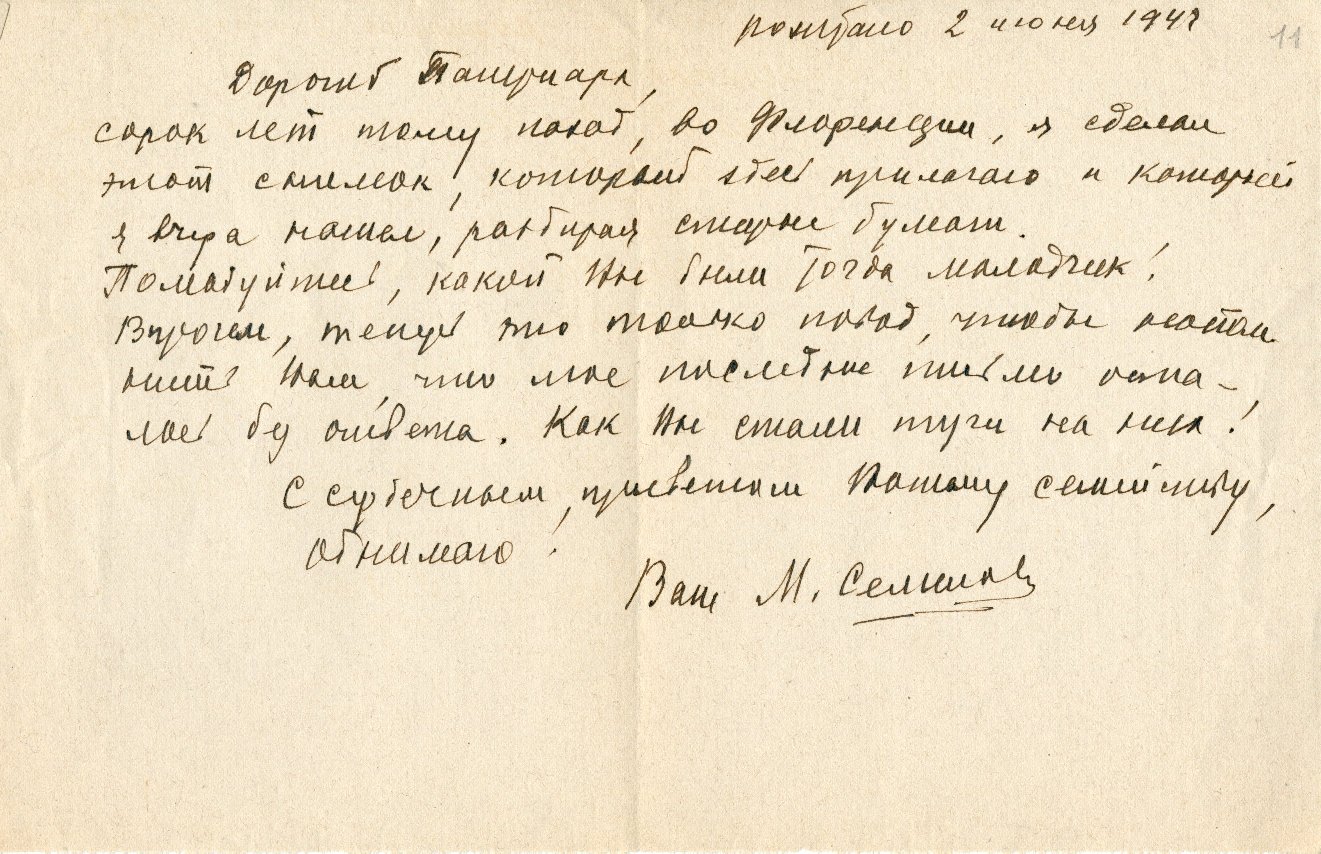 Позитано 2 июня 1947
11
Дорогой Патриарх,
сорок лет тому назад, во Флоренции, я сделал
этот снимок, который здесь прилагаю и который
я вчера нашел, разбирая старые бумаги.
Полюбуйтесь, какой Вы были тогда молодчик!
Впрочем, теперь это только повод, чтобы напом
нить Вам, что мое последнее письмо оста-
лось без ответа. Как Вы стали туги на
С сердечным приветом Вашему семейству,
обнимаю!
Ваш М. Семенов